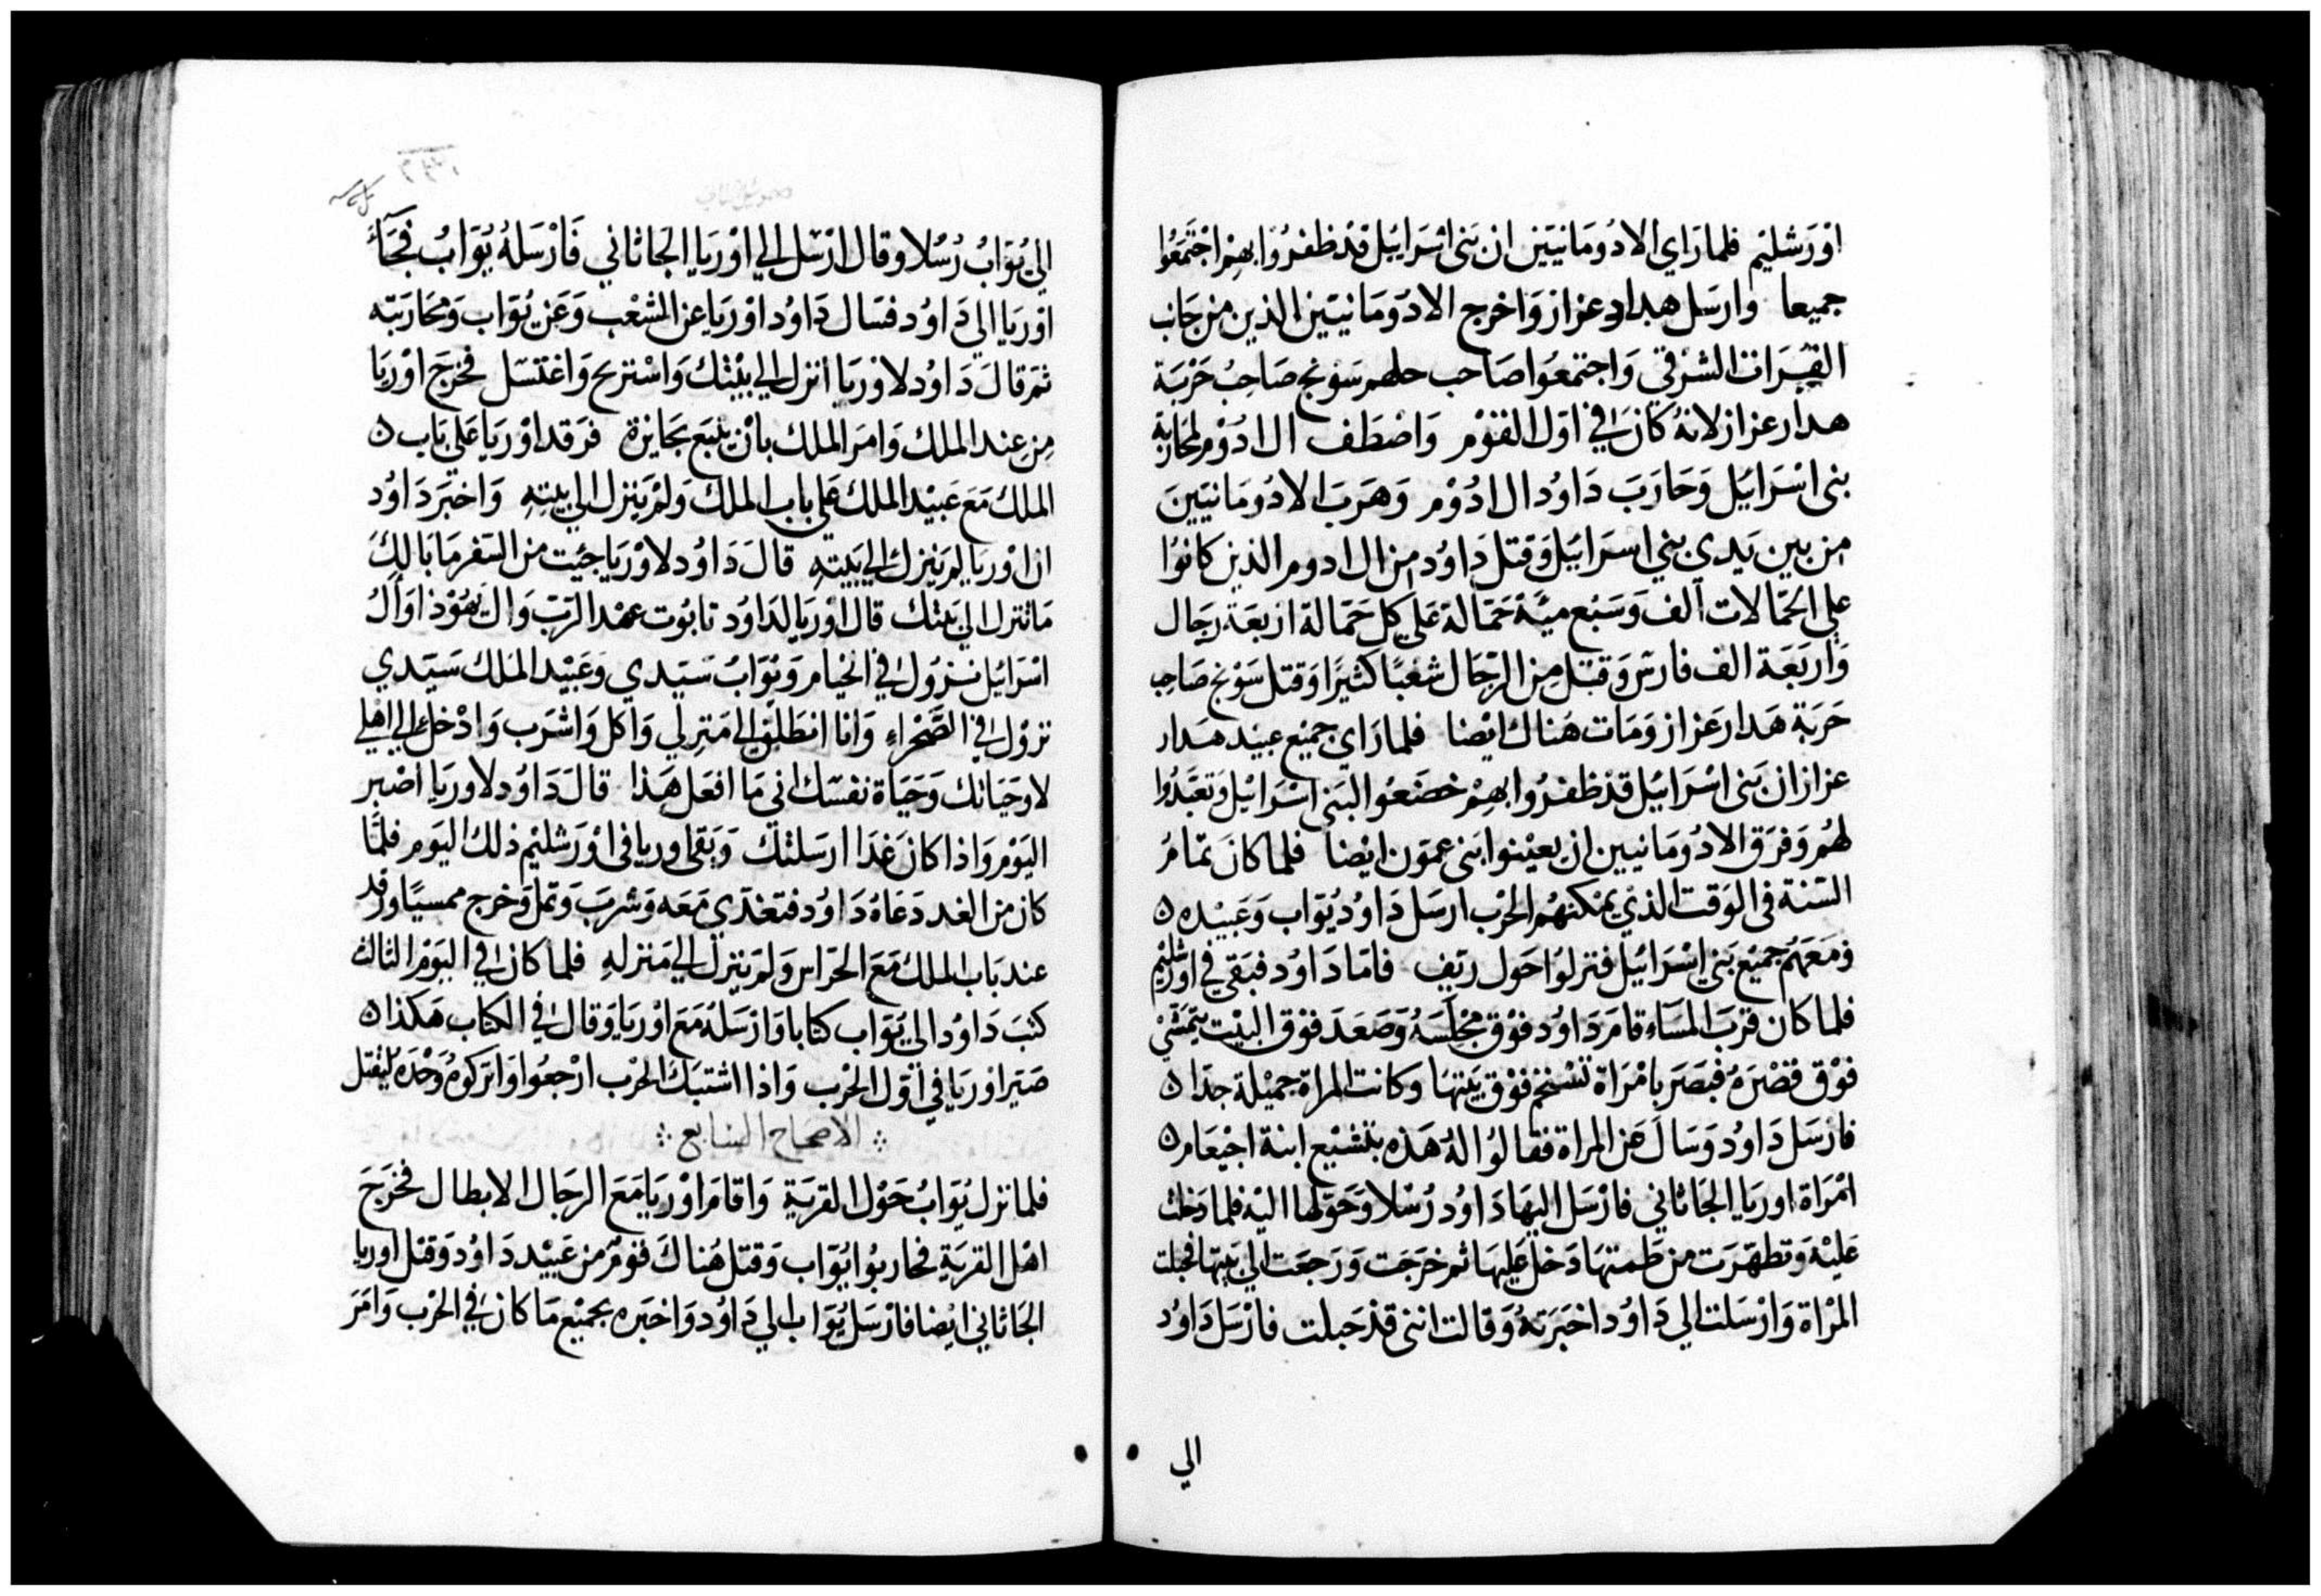 اوْرَشليْم فلما رَاي الادُومَانيتَين ان بَنى اسْرَاييل قدْ ظفرُوا بهِمْ اجْتمَعُوا
جميعا وارسَل هداد عزاز وَاخرج الادُوْمَانيتَين الذين من جَانب
الفُرَات الشرْقي وَاجتمعُوا صَاحب حلهم سَوْنج صَاحِبُ حَرْبَة
هدار عزاز لانهُ كانَ في اوّل القوْم وَاصْطَف ال ادُوْم لمحَاربَة
بنى اسْرَائيَل وَحَارَبَ دَاوُد ال ادُوْم وَهَرَبَ الادُومَانيَين
من بين يَدي بني اسرَائيَل وَقتل دَاوُد من ال ادوم الذين كانوُا
على الحمَّالات آلف وَسَبْع ميَّة حَمَّالة عَلي كل حَمَّالة ازبعَة رجَال
وَارَبَعَة الف فارسٌ وَقتَل مِن الرّجَال شعْبًا كثيرًا وَقتل سَوْنج صَاحِب
حَربَة هَدار عَزاز وَمَات هَناك ايْضا فلما رَاي جميْع عبيْد هَدار
عزاز ان بَنى اسْرَائيَل قدْ ظفرُوا بهمْ خضَعُوا لبَنى اسْرَائيْل وَتعبَّدُوا
لهُمْ وَفرَق الادُومَانييِن ان يعيْنوا بَنى عمَّون ايْضا فلما كانَ تمَامُ
السَّنة فى الوَقت الذيْ يمْكنهُم الحرْب ارسَل دَاوُد يُوّاب وَعَبيْده ۵
وَمَعَهُم جميْع بَنى اسْرَائيْل فنزلوُا حَول ربَّف فامّا دَاوُد فبَقي في اورَشليْم
فلما كان قربَ المسَاء قامَ دَاوُد فوْق مجْلسَهُ وَصَعَدَ فوْق البيْت يتمَشّي
فوْق قصْرَهُ فبَصَرَ بامْرَاة تسْتحَم فوْق بَيتهَا وَكانت المراة جميْلة جدَا ۵
فارْسَل دَاوُد وَسَالَ عَن المراة فقالوُا لهُ هَذه بتشبَع ابنة اجيْعَام ۵
امْرَاة اوريَا الجَاثاني فارْسَل اليهَا دَاوُد رُسْلا وَحَوّلها اليْه فلما دَخلت
عَليْه وَتطهّرَت من طمثهَا دَخل عَليهَا ثم خرَجَت وَرَجعَت الي بَيتهَا فحبلت
المرْاة وَارْسَلت الي دَاوُد اخبَرَتهُ وَقالت انني قدْ حَبلت فارْسَل دَاوُد
الي
الي يُوَابُ رُسُلا وقال ارْسَل الي اوْريَا الجَاثاني فَارْسَلهُ يُوَابُ فجَآءَ
اوْريَا الي دَاوُد فسَال دَاوُد اوْريَا عن الشعْب وَعَن يُوّاب وَمحَاربَته
ثم قالَ دَاوُد لاوريَا انزل الي بيْتك وَاسْتريح وَاغتسَل فخرَجَ اوْريَا
مِن عند الملك وَامرَ الملك بانْ يتبَع بجَايزة فرَقد اوْريَا عَلي بَاب ۵
الملك مَعَ عَبيْد الملك عَلي باب الملك وَلمْ يَنزل الي بيتِهِ وَاخبَر دَاوُد
ان اوْريَا لم يَنزل الي بَيتِهِ قالَ دَاوُد لاوْريَا جئِت من السَّفر مَا بَالكَ
مَا تنزل الي بَيتك قال اوْريَا لدَاوُد تابُوت عهْد الرَّبّ وَال يَهُوْذا وَآلُ
اسْرَائيْل نزُول في الخيَام وَيُوَابُ سَيّدي وَعَبيْد الملك سَيّدي
نزوْل في الصَّحْرَاء وَانا انطلق الى مَنزلي وَاكل وَاشرَب وَادْخل الي اهْلي
لا وحَيَاتك وَحَيَاة نفسَك انى مَا افعَل هَذا قالَ دَاوُد لاوريَا اصْبر
اليَوْم وَاذا كانَ غدَا ارسَلتك وَبَقى اوريا فى اوْرَشليْم ذلك اليَوم فلمَّا
كان من الغد دَعَاهُ دَاوُد فتغدّي مَعَه وَشربَ وَتمل وَخرج ممسيًا وَرقد
عند بَاب الملك مَعَ الحرّاس وَلمْ يَنزل الي مَنزلهِ فلما كان في اليَوْم الثالث
كتبَ دَاوُد الي يُوّاب كتابا وَارْسَلهُ مَعَ اوْريَا وَقال في الكتاب هَكذا ۵
صَيّر اوريَا في اوّل الحرْب وَاذا اشتبَكَ الحرْب ارْجعُوا وَاترَكوهُ وَحْدَهُ ليُقتل
؞ الاصحاح السابع ؞
فلما نزل يُوَابُ حَوْل القريَة وَاقامَ اوْريَا مَعَ الرجَال الابطال فخرَجَ
اهْل القريَةِ فحاربُوا يُوّاب وَقتل هُناكَ قومٌ من عَبيْد دَاوُد وَقتل اوريا
الجَاثاني ايْضا فارْسَل يُوَاب الي دَاوُد وَاخبَره بجميْع مَا كان في الحرْب وَامَرَ